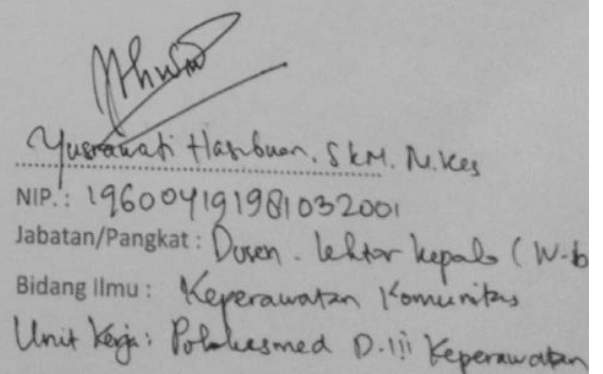 Yusrawati Hasibuan. SKM. M.Kes
NIP.: 196004191981032001
Jabatan/Pangkat : Dosen - Lektor Kepala (IV-b
Bidang Ilmu : Keperawatan Komunitas
Unit Kerja : D.III Keperawatan